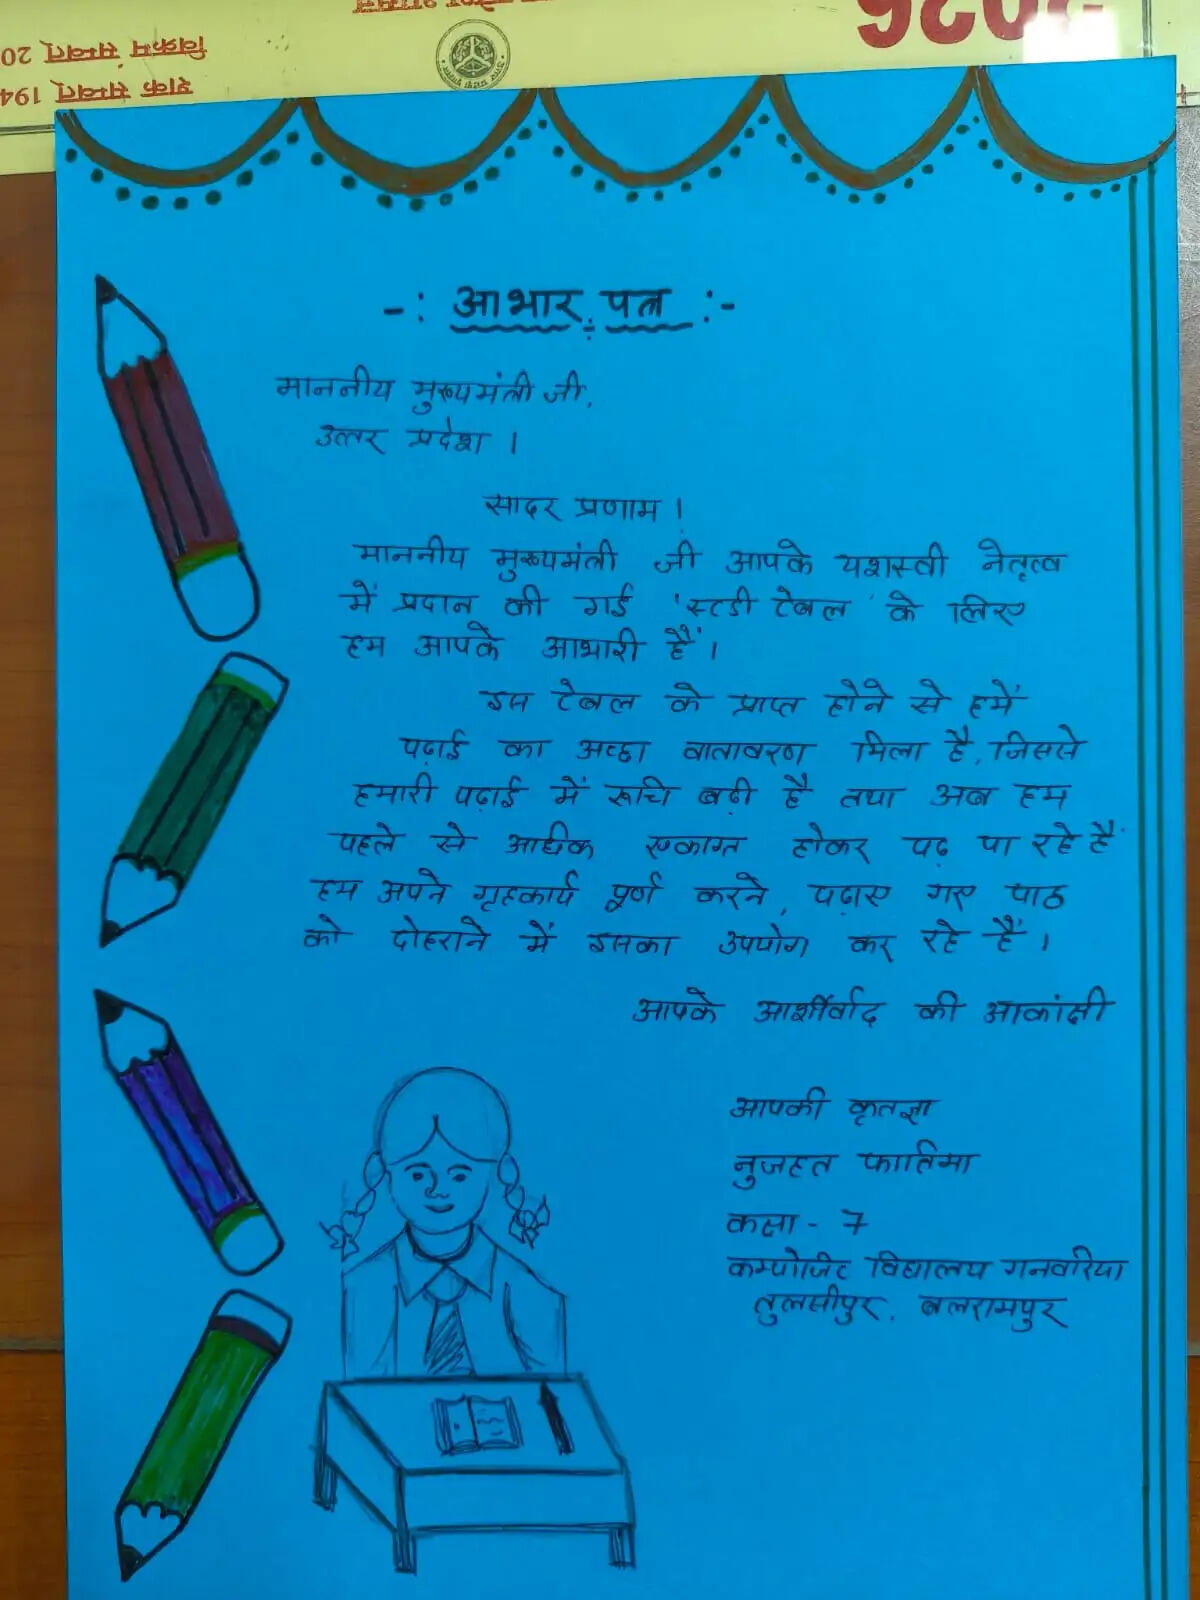 विक्रम सम्वत् 20
शक सम्वत् 194
-: आभार पत्र :-
माननीय मुख्यमंत्री जी,
उत्तर प्रदेश ।
सादर प्रणाम !
माननीय मुख्यमंत्री जी आपके यशस्वी नेतृत्व
में प्रदान की गई 'स्टडी टेबल' के लिए
हम आपके आभारी हैं ।
इस टेबल के प्राप्त होने से हमें
पढ़ाई का अच्छा वातावरण मिला है, जिससे
हमारी पढ़ाई में रूचि बढ़ी है तथा अब हम
पहले से अधिक एकाग्र होकर पढ़ पा रहे हैं
हम अपने गृहकार्य पूर्ण करने, पढ़ाए गए पाठ
को दोहराने में इसका उपयोग कर रहे हैं ।
आपके आर्शीर्वाद की आकांक्षी
आपकी कृतज्ञा
नुजहत फातिमा
कक्षा - 7
कम्पोजिट विद्यालय गनवरिया
तुलसीपुर, बलरामपुर